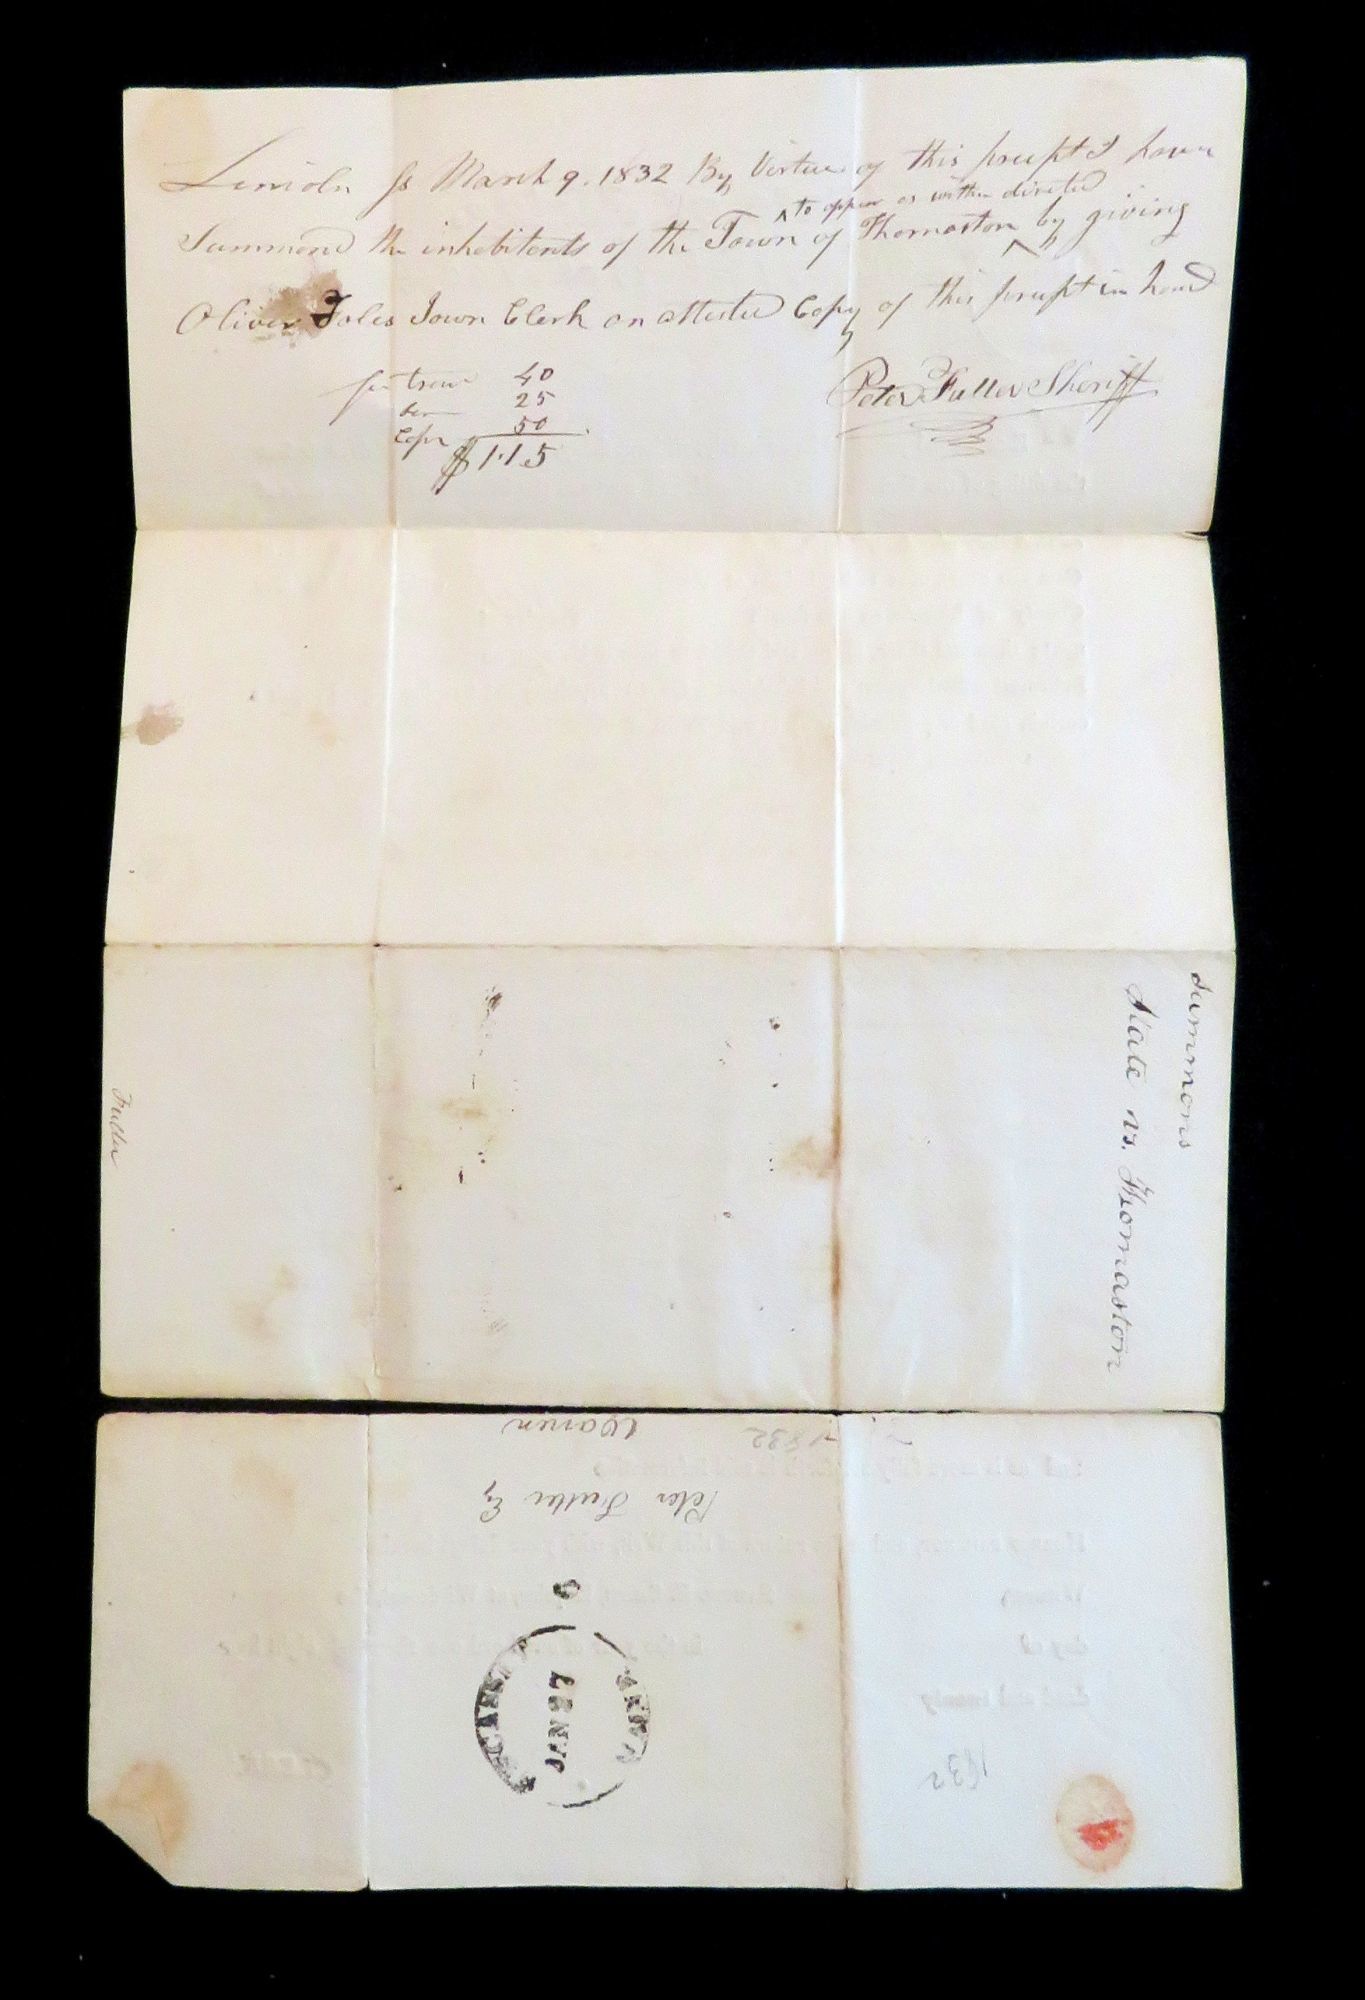 Lincoln Ss March 9. 1832 By Virtue of this precept I have
to appear as within directed
Summond the inhebitents of the Town of Thomaston by giving
Oliver Fales Town Clerk an attested Copy of this precept in hand
fee travel 40
ser 25
Copy 50
$ 1.15
Peter Fuller Sheriff
Summons
State vs. Thomaston
Fuller
Warren
1832
Peter Fuller Esq
6
WISCASSET
JAN 27
MAINE
1832